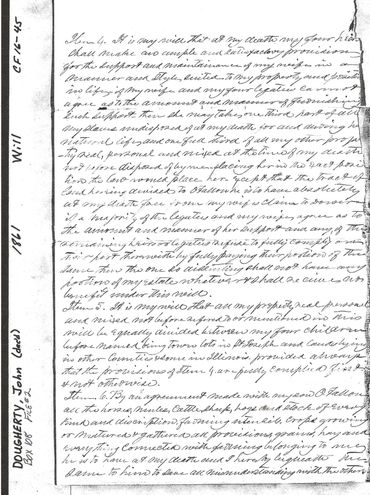 Item 4. It is my will that at my death my four heirs
shall make an ample and satisfactory provision
for the support and maintainance of my wife in a
manner and style suited to my property and position
in life, if my wife and my four legatees cannot
agree as to the amount and manner of furnishing
such support then she may take one third part of all
my slaves undisposed of at my death for and during her
natural life and one full third of all my other prope
rty real, personal and mixed at the time of my death
not before disposed of by me placing her in the exact posi
tion the law would place her except that the tract of
land having devised to O'Fallon he is to have absolutely
at my death free from my wife's claim to dower
if a majority of the legatees and my wife agree as to
the amount and manner of her support and any of the
remaining heirs or legatees refuse to fully comply or
their part therewith by fully paying their portion of the
same then the one so dissenting shall not have any
portion of my estate whatever & shall receive no
benefit under this will.
Item 5. It is my will that all my property real personal
and mixed not before refered to or mentioned in this
will be equally divided between my four children
before named being town lots in St Joseph and lands lying
in other Counties & some in Illinois, provided always
that the provisions of Item 4 are fully complied first
& not otherwise.
Item 6. By an agreement made with my son O'Fallon
all the horses, mules, Cattle, sheep, hogs and stock of every
kind and description, farming utensils, crops growing
or matured & gathered all provisions grain, hay and
everything connected with farming belonging to me
he is to have at my death and I hereby bequeath the
same to him to save all misunderstanding with the others
DOUGHERTY, John (dec'd) 1861 Will CF 16-45
Box 85 Pkg 2